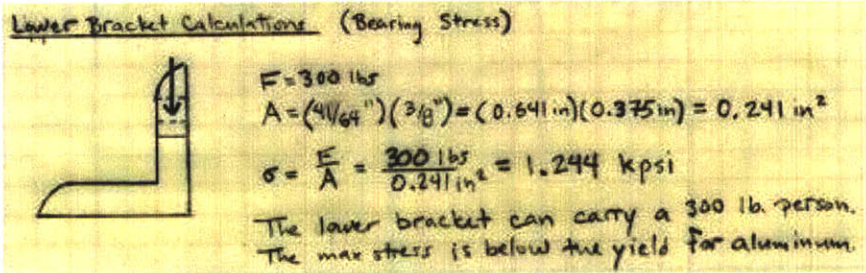 Lower Bracket Calculations (Bearing Stress)
F = 300 lbs
A = (41/64")(3/8") = (0.641in)(0.375in) = 0.241 in²
σ = F/A = 300 lbs/0.241in² = 1.244 kpsi
The lower bracket can carry a 300 lb. person.
The max stress is below the yield for aluminum.